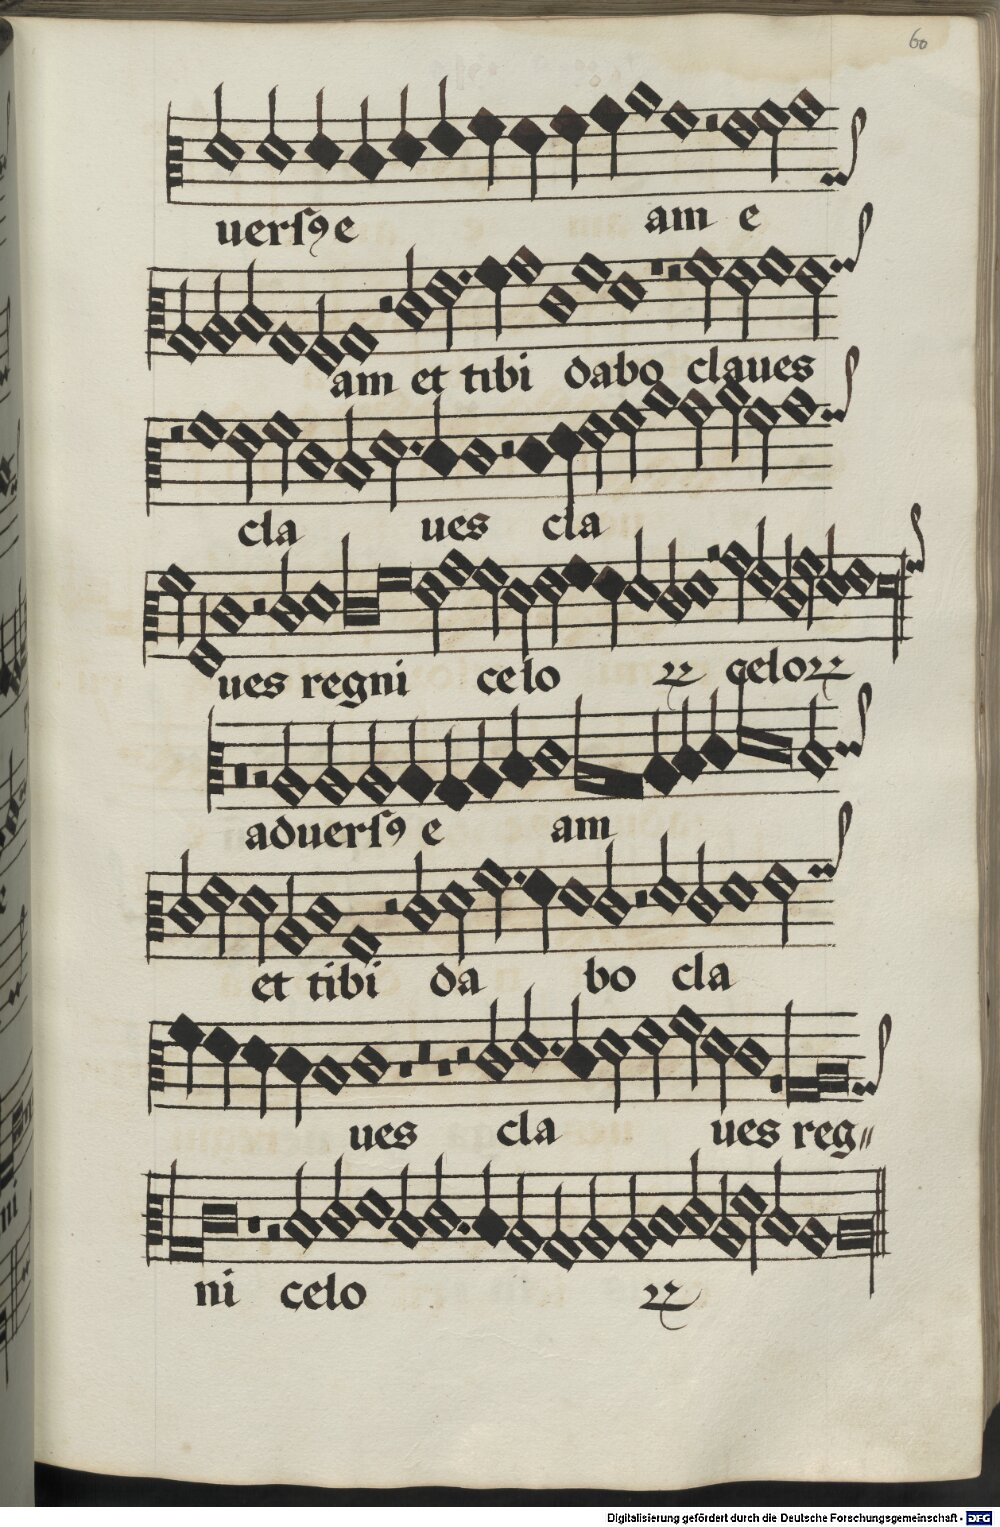 60
uersꝯ e am e
am et tibi dabo claues
cla ues cla
ues regni celo ꝝ celoꝝ
aduersꝯ e am
et tibi da bo cla
ues cla ues reg〃
ni celo ꝝ
Digitalisierung gefördert durch die Deutsche Forschungsgemeinschaft - DFG